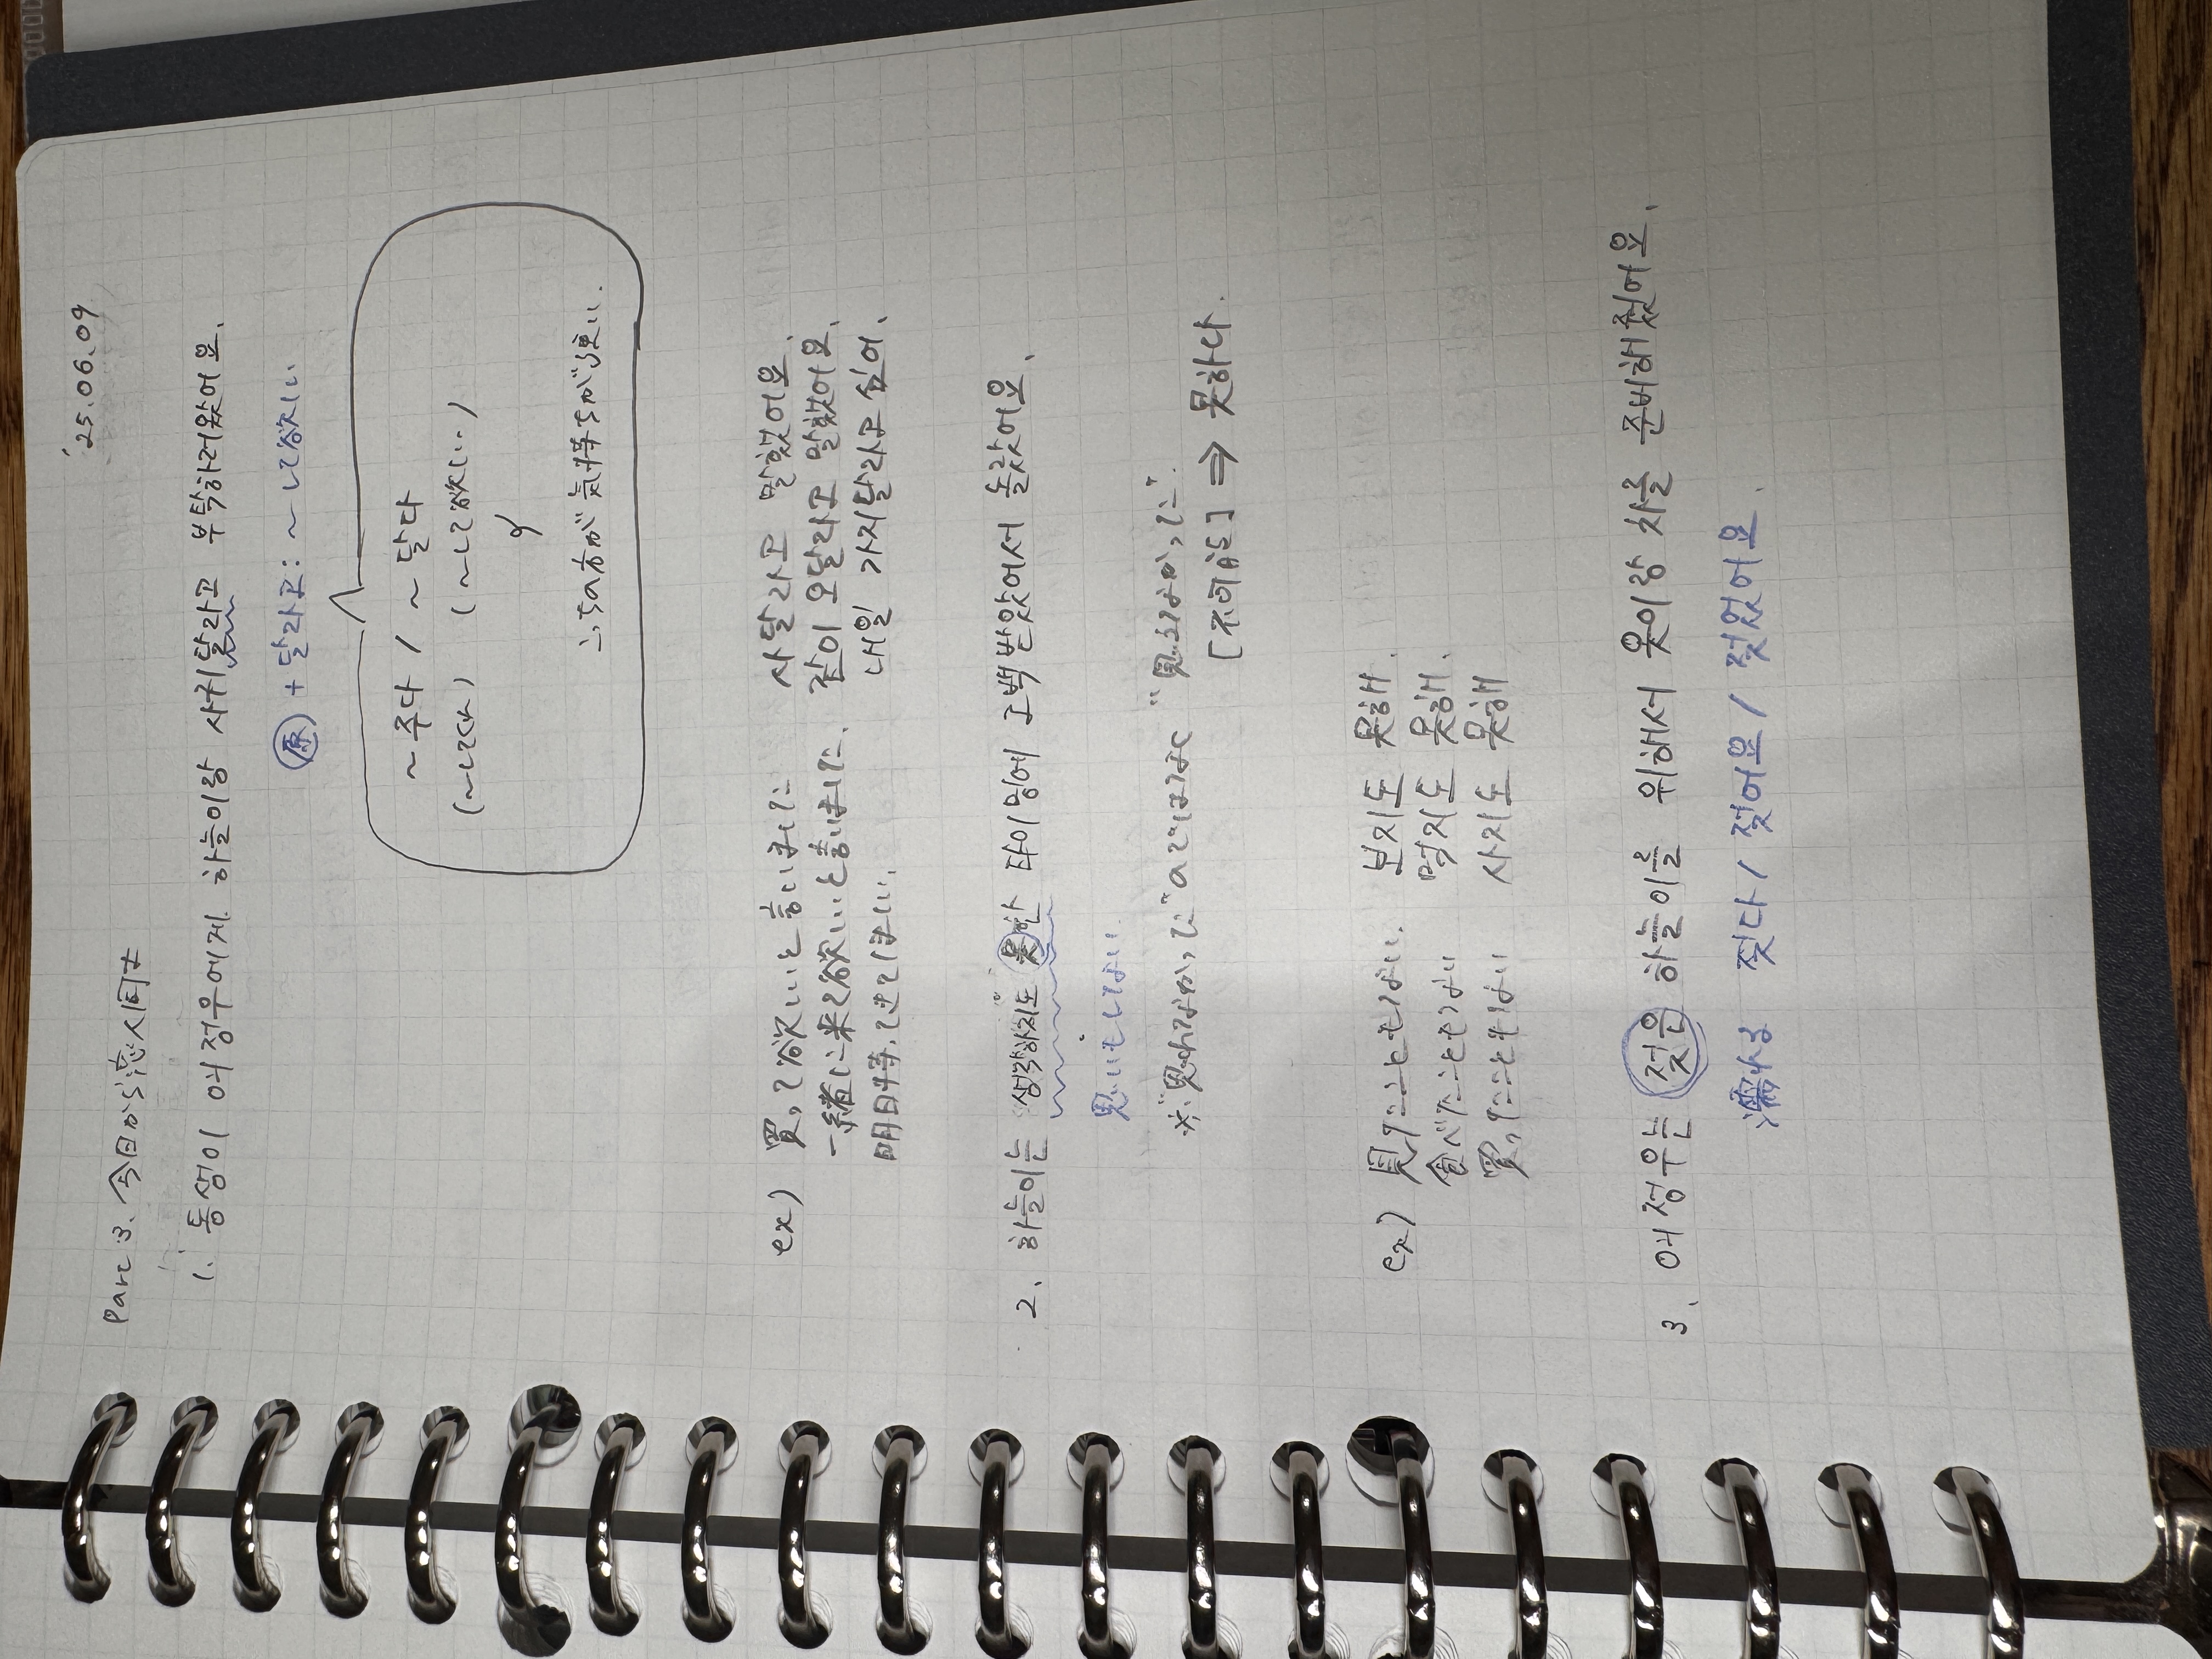 '25.06.09
Part 3. 今日から恋人同士
1. 동생이 여정우에게 하늘이랑 사귀달라고 부탁하러왔어요.
原 + 달라고 : ~して欲しい.
~주다 / ~달다
(~してくれ) (~して欲しい)
こちらの方が気持ちが強い.
ex) 買って欲しいと言いました 사달라고 말했어요.
一緒に来て欲しいと言いました. 같이 오달라고 말했어요.
明日持ってきて欲しい. 내일 가지달라고 싶어.
2. 하늘이는 생각하지도 못한 타이밍에 고백받았어서 놀랐어요.
思いもしない.
※"思わなかった"のではなく "思えなかった".
[不可能] ⇒ 못하다.
ex) 見ることもない. 보지도 못해.
食べたこともない 먹지도 못해.
買ったこともない 사지도 못해
3. 여정우는 젖은 하늘이를 위해서 옷이랑 차를 준비해줬어요.
濡れる 젖다 / 젖어요 / 젖었어요.